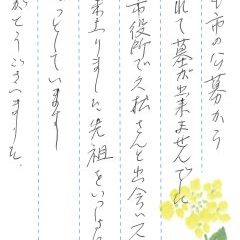 市の公募から
れて墓が出来ませんでした
市役所で久松さんと出会いて
来上りました先祖をいっしょに
っとしています
がとうございました。